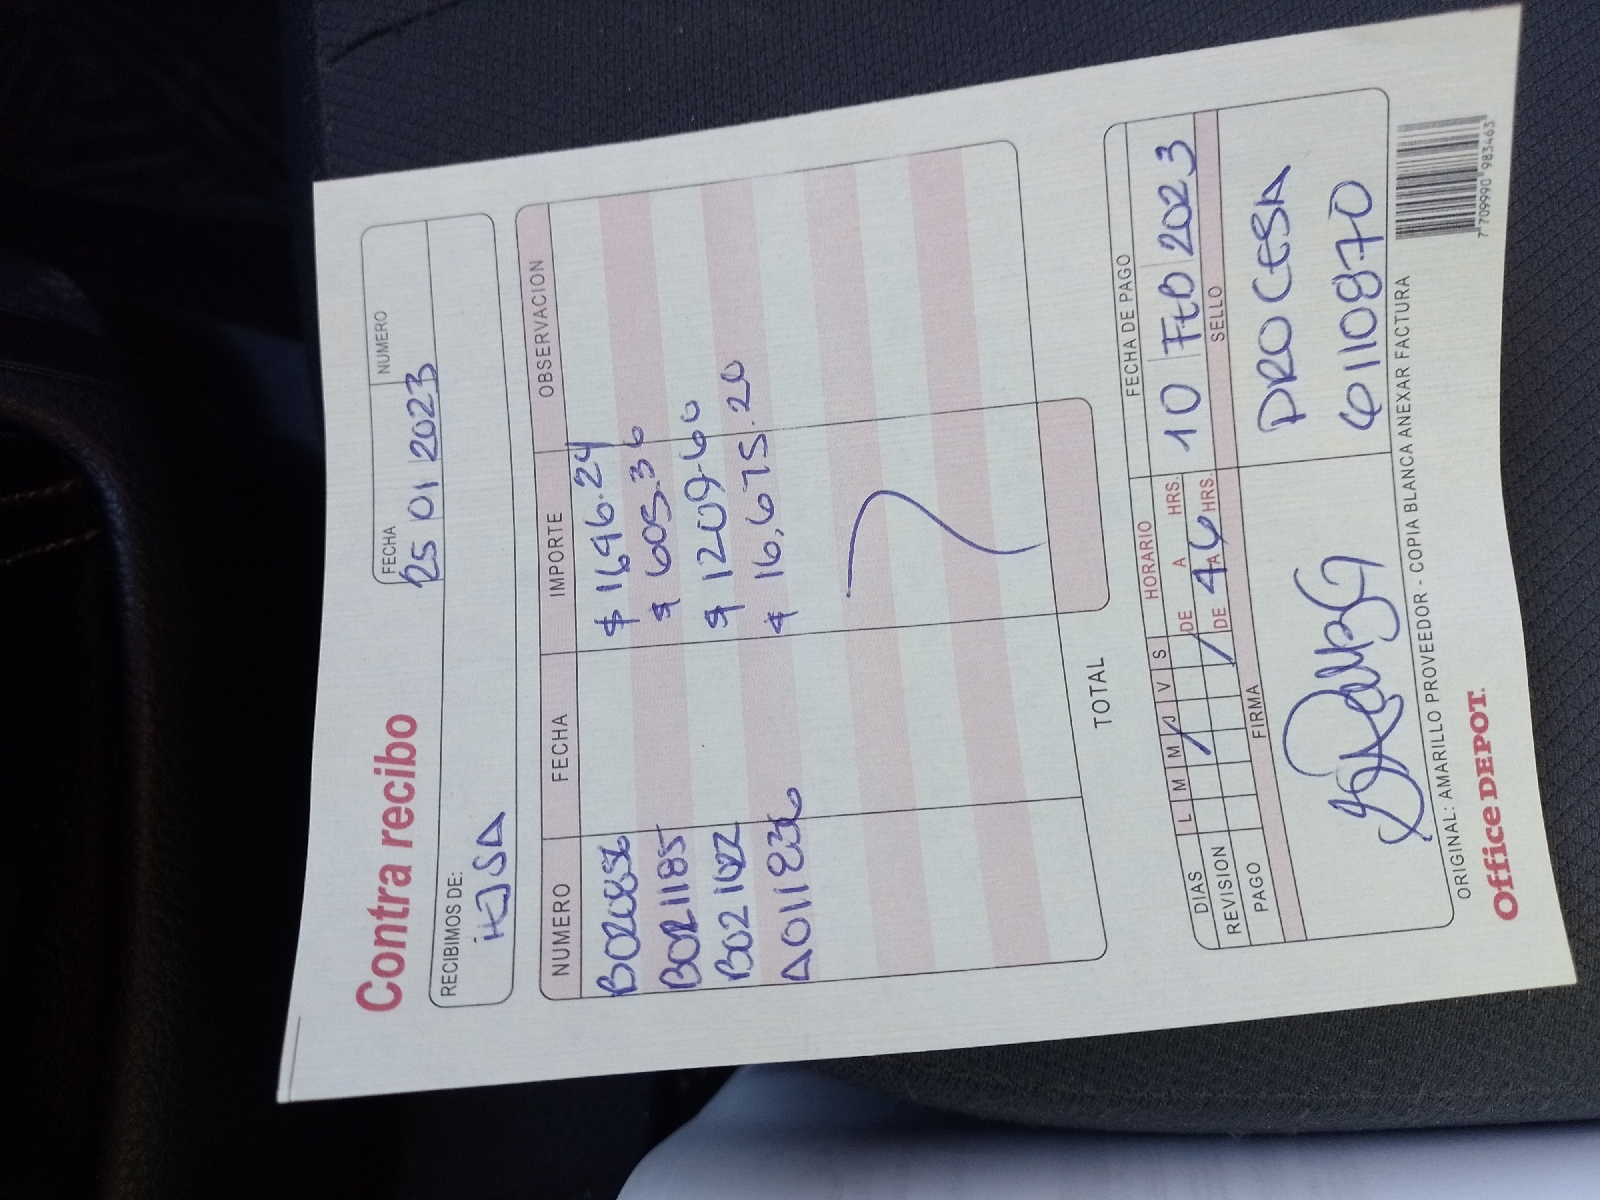 Contra recibo
FECHA NUMERO
25 01 2023
RECIBIMOS DE:
NUMERO FECHA IMPORTE OBSERVACION
$ 1646.24
B021185 $ 605.36
$ 1209.60
A011836 $ 16,675.20
TOTAL
DIAS L M M J V S HORARIO FECHA DE PAGO
REVISION DE A HRS. 10 FEB 2023
PAGO DE A HRS.
FIRMA SELLO
PROCESA
6110870
ORIGINAL: AMARILLO PROVEEDOR - COPIA BLANCA ANEXAR FACTURA
Office DEPOT.
7 709990 983463